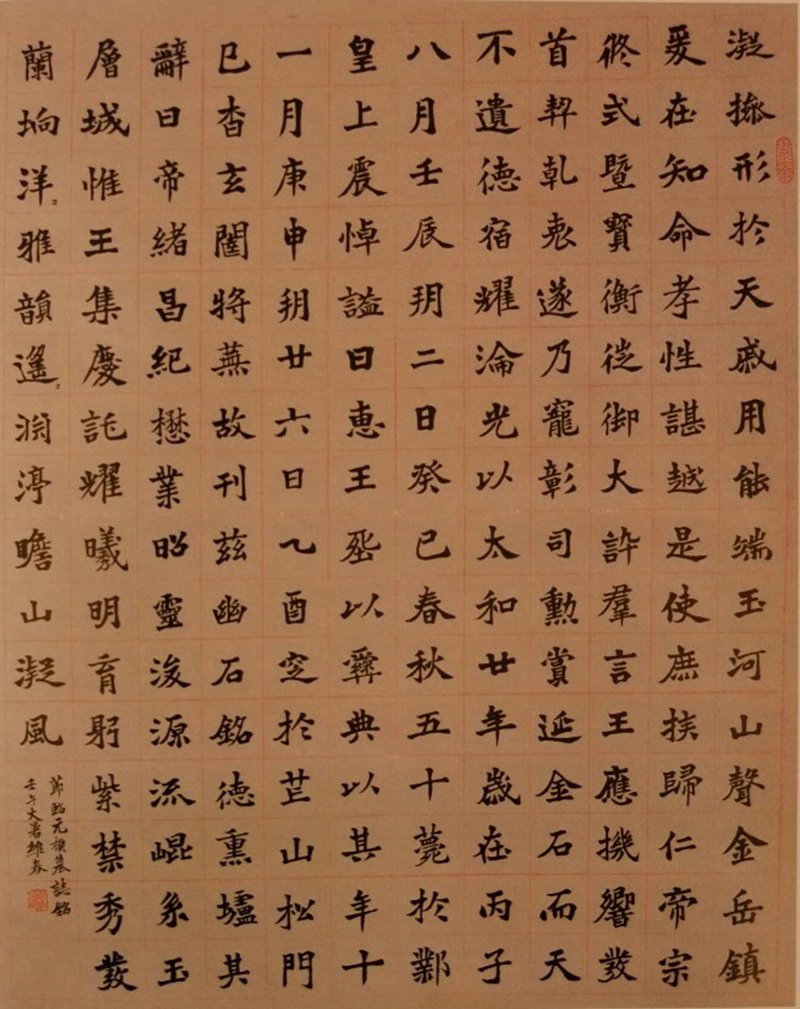 凝操形於天戚用能端玉河山聲金岳鎮
爰在知命孝性諶越是使庶族歸仁帝宗
攸式暨寶衡徙御大訊羣言王應機響發
首契乾衷遂乃寵彰司勳賞延金石而天
不遺德宿耀淪光以太和廿年歲在丙子
八月壬辰朔二日癸巳春秋五十薨於鄴
皇上震悼謚曰惠王葬以彝典以其年十
一月庚申朔廿六日乙酉窆於芒山松門
巳杳玄闥將蕪故刊茲幽石銘德熏壚其
辭曰帝緒昌紀懋業昭靈浚源流崐系玉
層城惟王集慶託耀曦明育躬紫禁秀發
蘭坰洋〻雅韻遙〻淵渟瞻山凝風
節臨元楨墓誌銘
壬午大暑維春